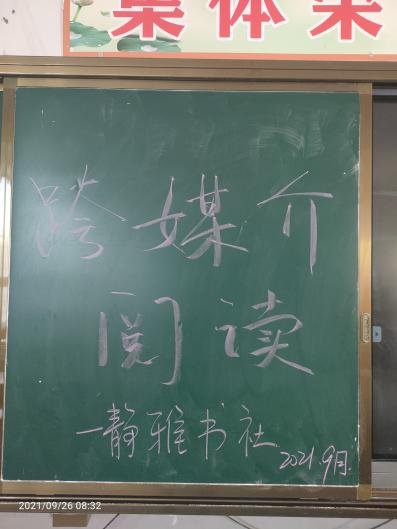 集体荣
跨媒介
阅读
一静雅书社
2021.9月
2021/09/26 08:32